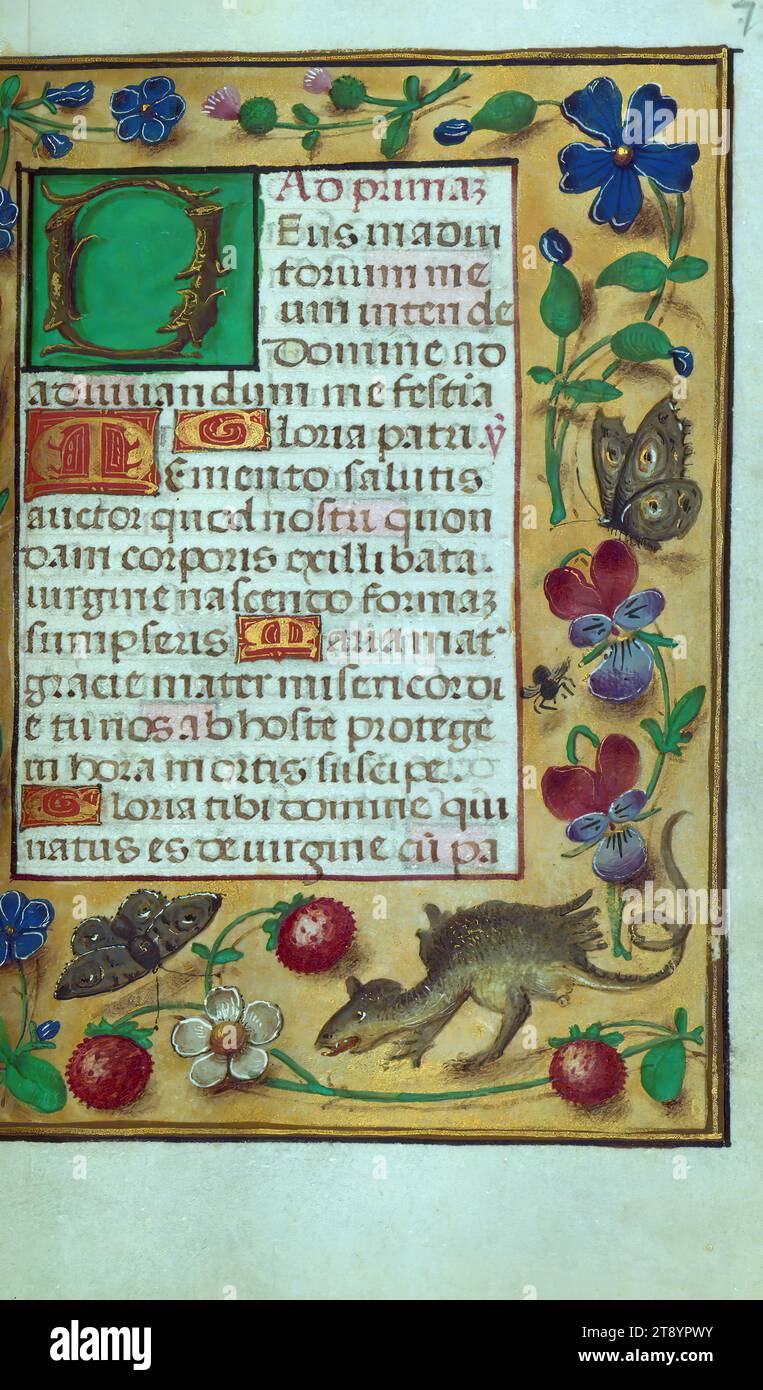 7
Ad primaꝫ
Deus in adiu
torium me
um inten de
Domine ad
adiuuandum me festia
Gloria patri. ꝟ
Memento salutis
auctor quod nostri quon
dam corporis ex illibata.
uirgine nascendo formaꝫ
sumpseris Maria mat
gracie mater misericordi
e tu nos ab hoste protege
in hora mortis suscipe.
Gloria tibi domine qui
natus es de uirgine cū pa
a
alamy
Image ID: 2T8YPWY
www.alamy.com